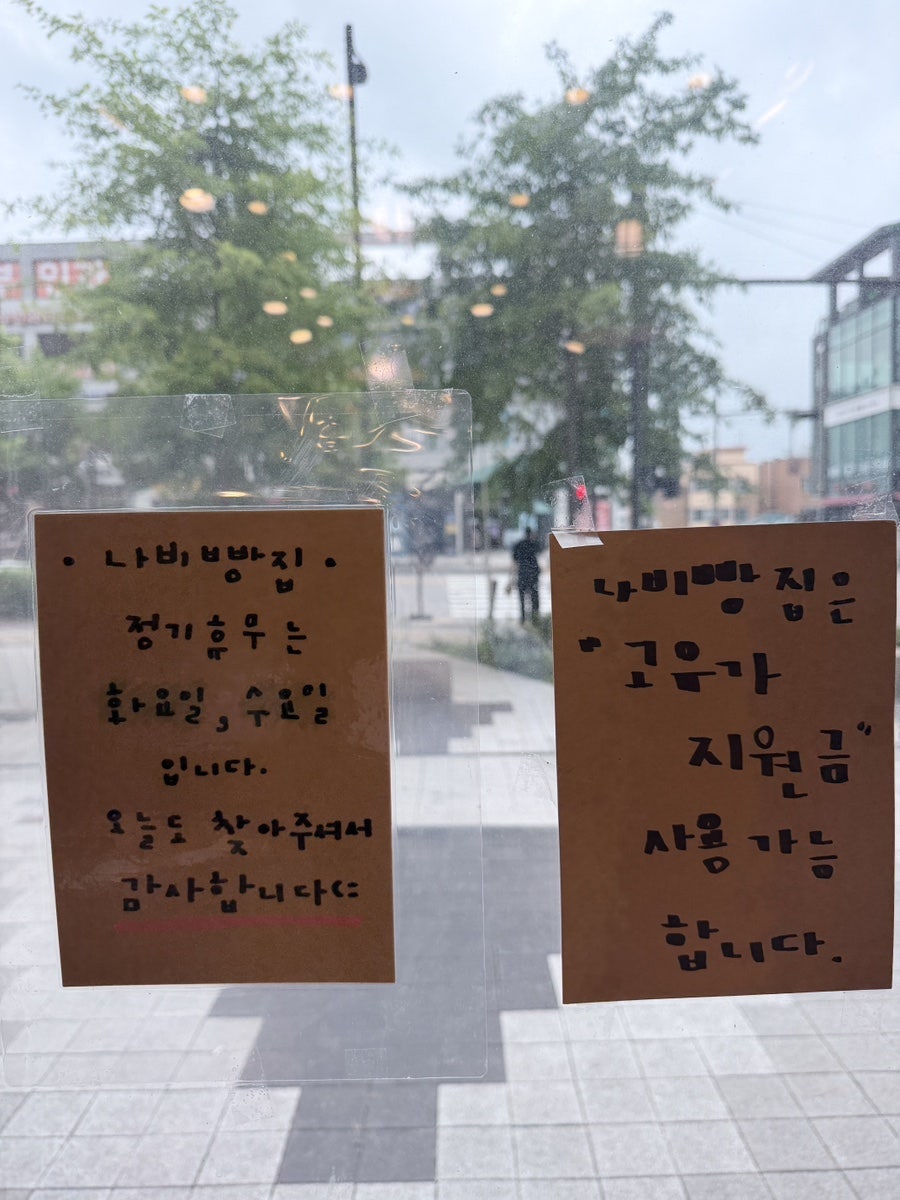 • 나비빵집 •
정기휴무는
화요일, 수요일
입니다.
오늘도 찾아주셔서
감사합니다(:
나비빵집은
"고유가
지원금"
사용가능
합니다.